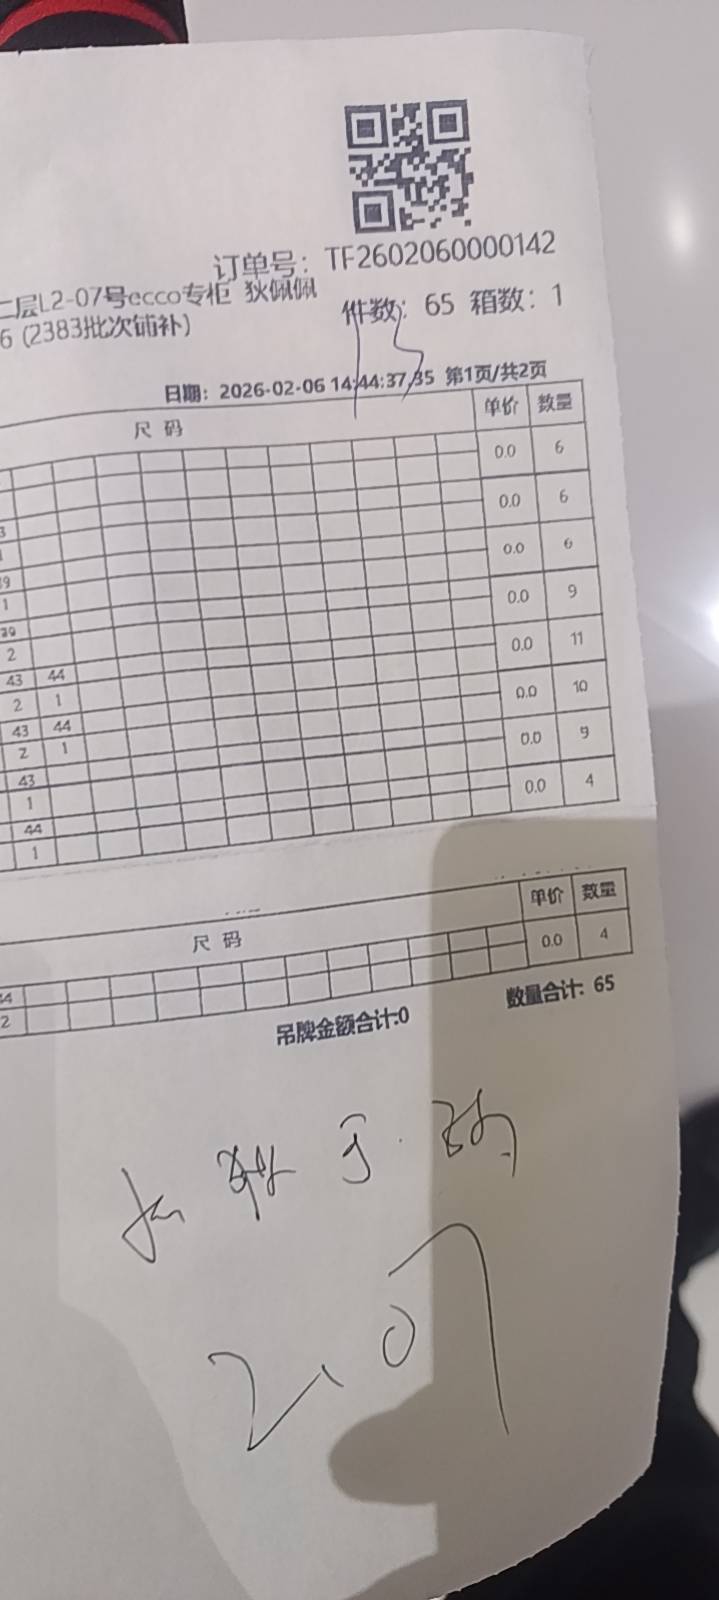 订单号: TF2602060000142
二层L2-07号ecco专柜 狄佩佩
件数: 65 箱数: 1
6 (2383批次铺补)
日期: 2026-02-06 14:44:37.35 第1页/共2页
尺码 单价 数量
0.0 6
0.0 6
0.0 6
39
1
0.0 9
39
2
0.0 11
43 44
2 1
0.0 10
43 44
2 1
0.0 9
43
1
0.0 4
44
1
尺码 单价 数量
0.0 4
44
2
吊牌金额合计:0 数量合计: 65
2.07